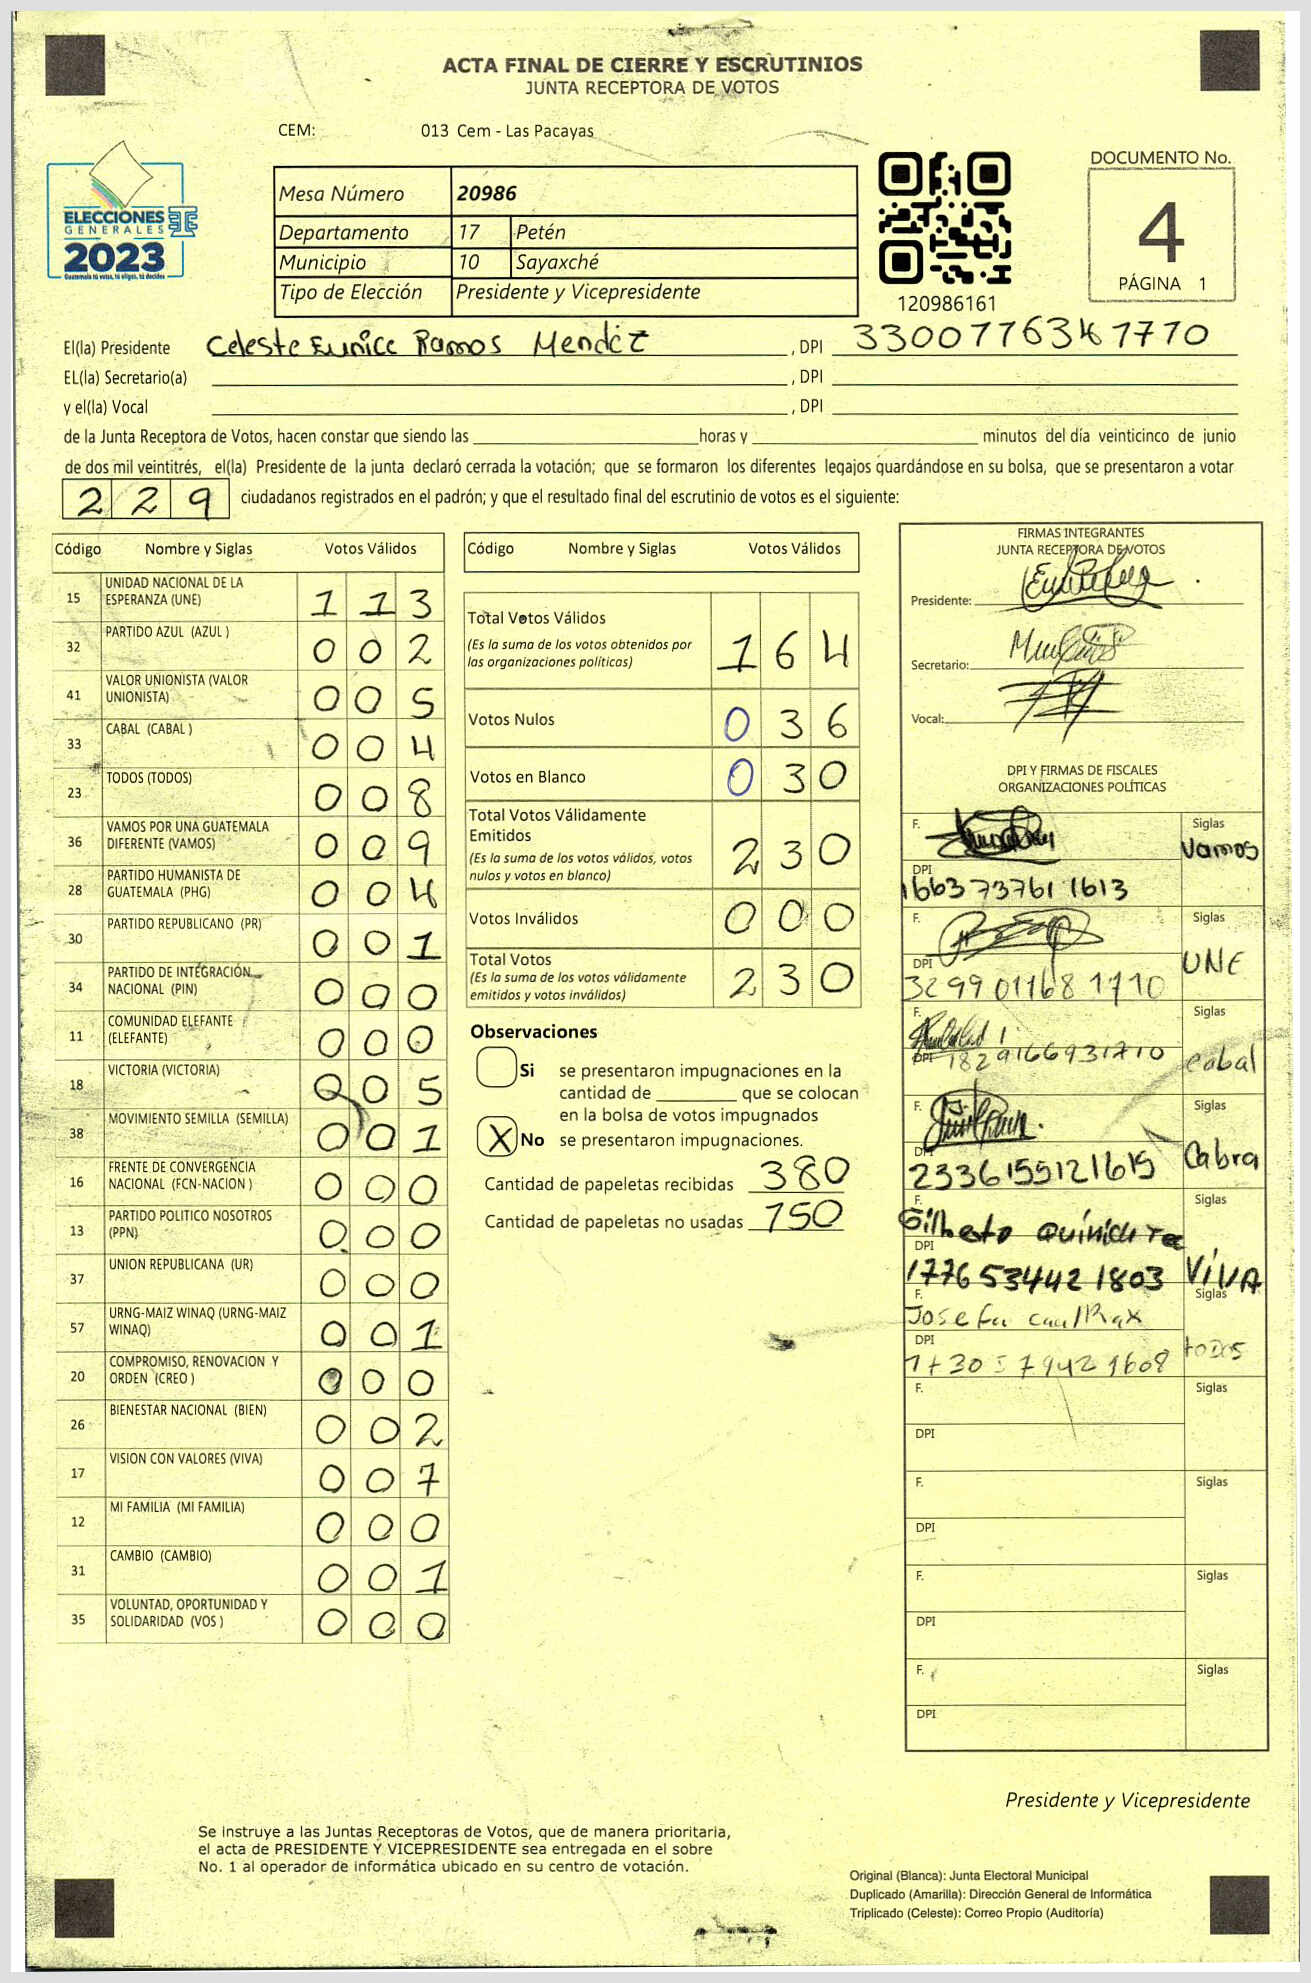 ACTA FINAL DE CIERRE Y ESCRUTINIOS
JUNTA RECEPTORA DE VOTOS
CEM: 013 Cem - Las Pacayas
ELECCIONES
GENERALES
2023
Guatemala tú votas, tú eliges, tú decides
Mesa Número 20986
Departamento 17 Petén
Municipio 10 Sayaxché
Tipo de Elección Presidente y Vicepresidente
120986161
DOCUMENTO No.
4
PÁGINA 1
El(la) Presidente Celeste Eunice Ramos Mendez , DPI
EL(la) Secretario(a) , DPI
y el(la) Vocal , DPI
de la Junta Receptora de Votos, hacen constar que siendo las horas y minutos del día veinticinco de junio
de dos mil veintitrés, el(la) Presidente de la junta declaró cerrada la votación; que se formaron los diferentes legajos guardándose en su bolsa, que se presentaron a votar
2 2 9 ciudadanos registrados en el padrón; y que el resultado final del escrutinio de votos es el siguiente:
Código Nombre y Siglas Votos Válidos
15 UNIDAD NACIONAL DE LA ESPERANZA (UNE) 1 1 3
32 PARTIDO AZUL (AZUL ) 0 0 2
41 VALOR UNIONISTA (VALOR UNIONISTA) 0 0 5
33 CABAL (CABAL ) 0 0 4
23 TODOS (TODOS) 0 0 8
36 VAMOS POR UNA GUATEMALA DIFERENTE (VAMOS) 0 0 9
28 PARTIDO HUMANISTA DE GUATEMALA (PHG) 0 0 4
30 PARTIDO REPUBLICANO (PR) 0 0 1
34 PARTIDO DE INTEGRACIÓN NACIONAL (PIN) 0 0 0
11 COMUNIDAD ELEFANTE (ELEFANTE) 0 0 0
18 VICTORIA (VICTORIA) 0 0 5
38 MOVIMIENTO SEMILLA (SEMILLA) 0 0 1
16 FRENTE DE CONVERGENCIA NACIONAL (FCN-NACION ) 0 0 0
13 PARTIDO POLITICO NOSOTROS (PPN) 0 0 0
37 UNION REPUBLICANA (UR) 0 0 0
57 URNG-MAIZ WINAQ (URNG-MAIZ WINAQ) 0 0 1
20 COMPROMISO, RENOVACION Y ORDEN (CREO ) 0 0 0
26 BIENESTAR NACIONAL (BIEN) 0 0 2
17 VISION CON VALORES (VIVA) 0 0 7
12 MI FAMILIA (MI FAMILIA) 0 0 0
31 CAMBIO (CAMBIO) 0 0 1
35 VOLUNTAD, OPORTUNIDAD Y SOLIDARIDAD (VOS ) 0 0 0
Código Nombre y Siglas Votos Válidos
Total Votos Válidos
(Es la suma de los votos obtenidos por
las organizaciones políticas) 1 6 4
Votos Nulos 0 3 6
Votos en Blanco 0 3 0
Total Votos Válidamente
Emitidos
(Es la suma de los votos válidos, votos
nulos y votos en blanco) 2 3 0
Votos Inválidos 0 0 0
Total Votos
(Es la suma de los votos válidamente
emitidos y votos inválidos) 2 3 0
Observaciones
Si se presentaron impugnaciones en la
cantidad de que se colocan
en la bolsa de votos impugnados
X No se presentaron impugnaciones.
Cantidad de papeletas recibidas 380
Cantidad de papeletas no usadas 150
FIRMAS INTEGRANTES
JUNTA RECEPTORA DE VOTOS
Presidente:
Secretario:
Vocal:
DPI Y FIRMAS DE FISCALES
ORGANIZACIONES POLÍTICAS
F. Siglas
Vamos
DPI
1663 73761 1613
F. Siglas
UNE
DPI
3299 01168 1710
F. Siglas
cabal
DPI 1829166931710
F. Siglas
Cabra
DPI
2336155121615
F. Siglas
Gilberto
DPI
1776 53442 1803 VIVA
F. Siglas
Josefa
DPI todos
1730 57942 1608
F. Siglas
DPI
F. Siglas
DPI
F. Siglas
DPI
F. Siglas
DPI
Presidente y Vicepresidente
Se instruye a las Juntas Receptoras de Votos, que de manera prioritaria,
el acta de PRESIDENTE Y VICEPRESIDENTE sea entregada en el sobre
No. 1 al operador de informática ubicado en su centro de votación.
Original (Blanca): Junta Electoral Municipal
Duplicado (Amarilla): Dirección General de Informática
Triplicado (Celeste): Correo Propio (Auditoría)